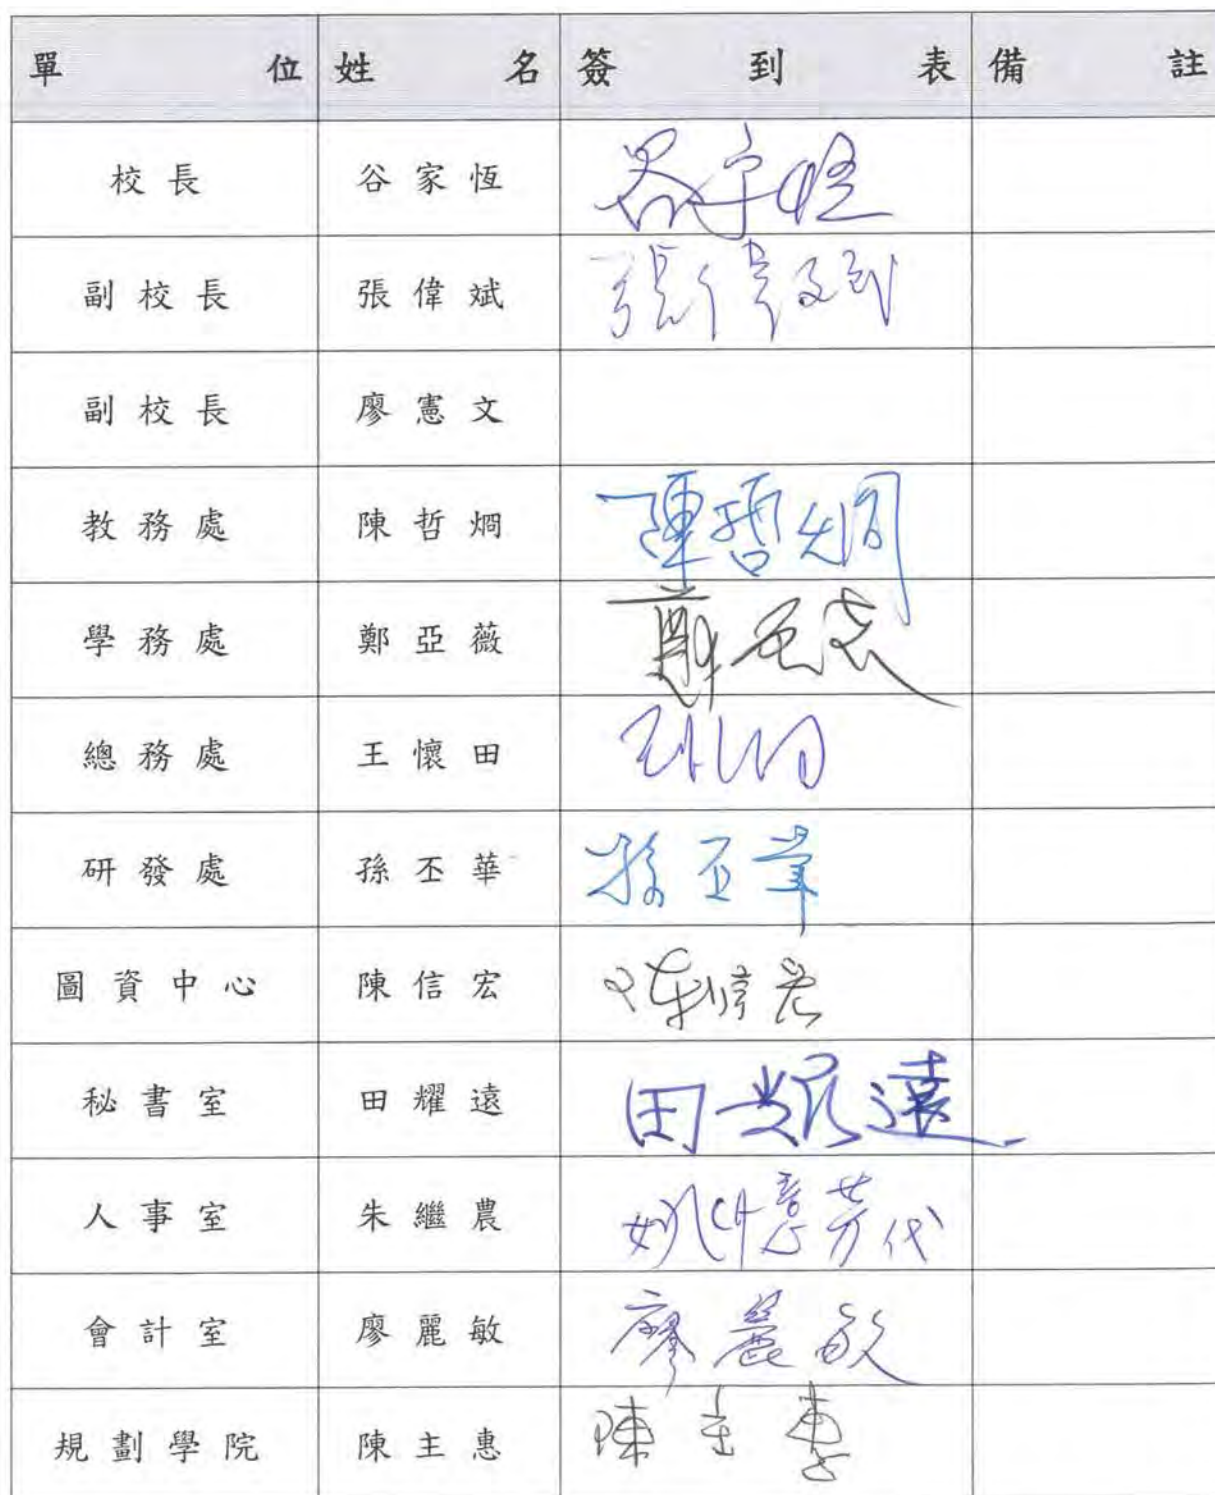 單位 姓名 簽到表 備註
校長 谷家恆 谷家恆
副校長 張偉斌 張偉斌
副校長 廖憲文
教務處 陳哲炯 陳哲炯
學務處 鄭亞薇
總務處 王懷田
研發處 孫丕華 孫丕華
圖資中心 陳信宏 陳信宏
秘書室 田耀遠 田耀遠
人事室 朱繼農
會計室 廖麗敏 廖麗敏
規劃學院 陳主惠 陳主惠